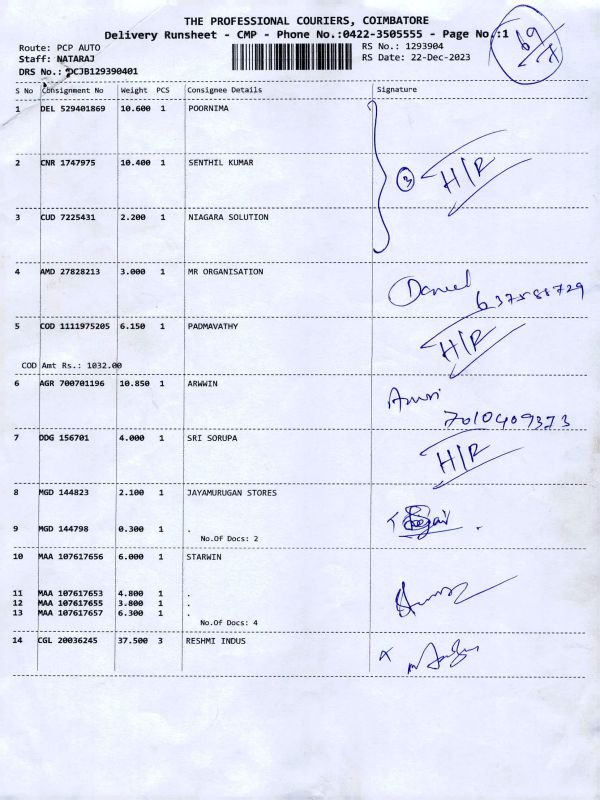 THE PROFESSIONAL COURIERS, COIMBATORE
Delivery Runsheet - CMP - Phone No.:0422-3505555 - Page No.:1
Route: PCP AUTO RS No.: 1293904
Staff: NATARAJ RS Date: 22-Dec-2023
DRS No.: DCJB129390401
S No Consignment No Weight PCS Consignee Details Signature
1 DEL 529401869 10.600 1 POORNIMA
2 CNR 1747975 10.400 1 SENTHIL KUMAR
3 H/R
3 CUD 7225431 2.200 1 NIAGARA SOLUTION
4 AMD 27828213 3.000 1 MR ORGANISATION
Daniel
5 COD 1111975205 6.150 1 PADMAVATHY
H/R
COD Amt Rs.: 1032.00
6 AGR 700701196 10.850 1 ARWWIN
7010409373
7 DDG 156701 4.000 1 SRI SORUPA
H/R
8 MGD 144823 2.100 1 JAYAMURUGAN STORES
9 MGD 144798 0.300 1 .
No.Of Docs: 2
10 MAA 107617656 6.000 1 STARWIN
11 MAA 107617653 4.800 1 .
12 MAA 107617655 3.800 1 .
13 MAA 107617657 6.300 1 .
No.Of Docs: 4
14 CGL 20036245 37.500 3 RESHMI INDUS